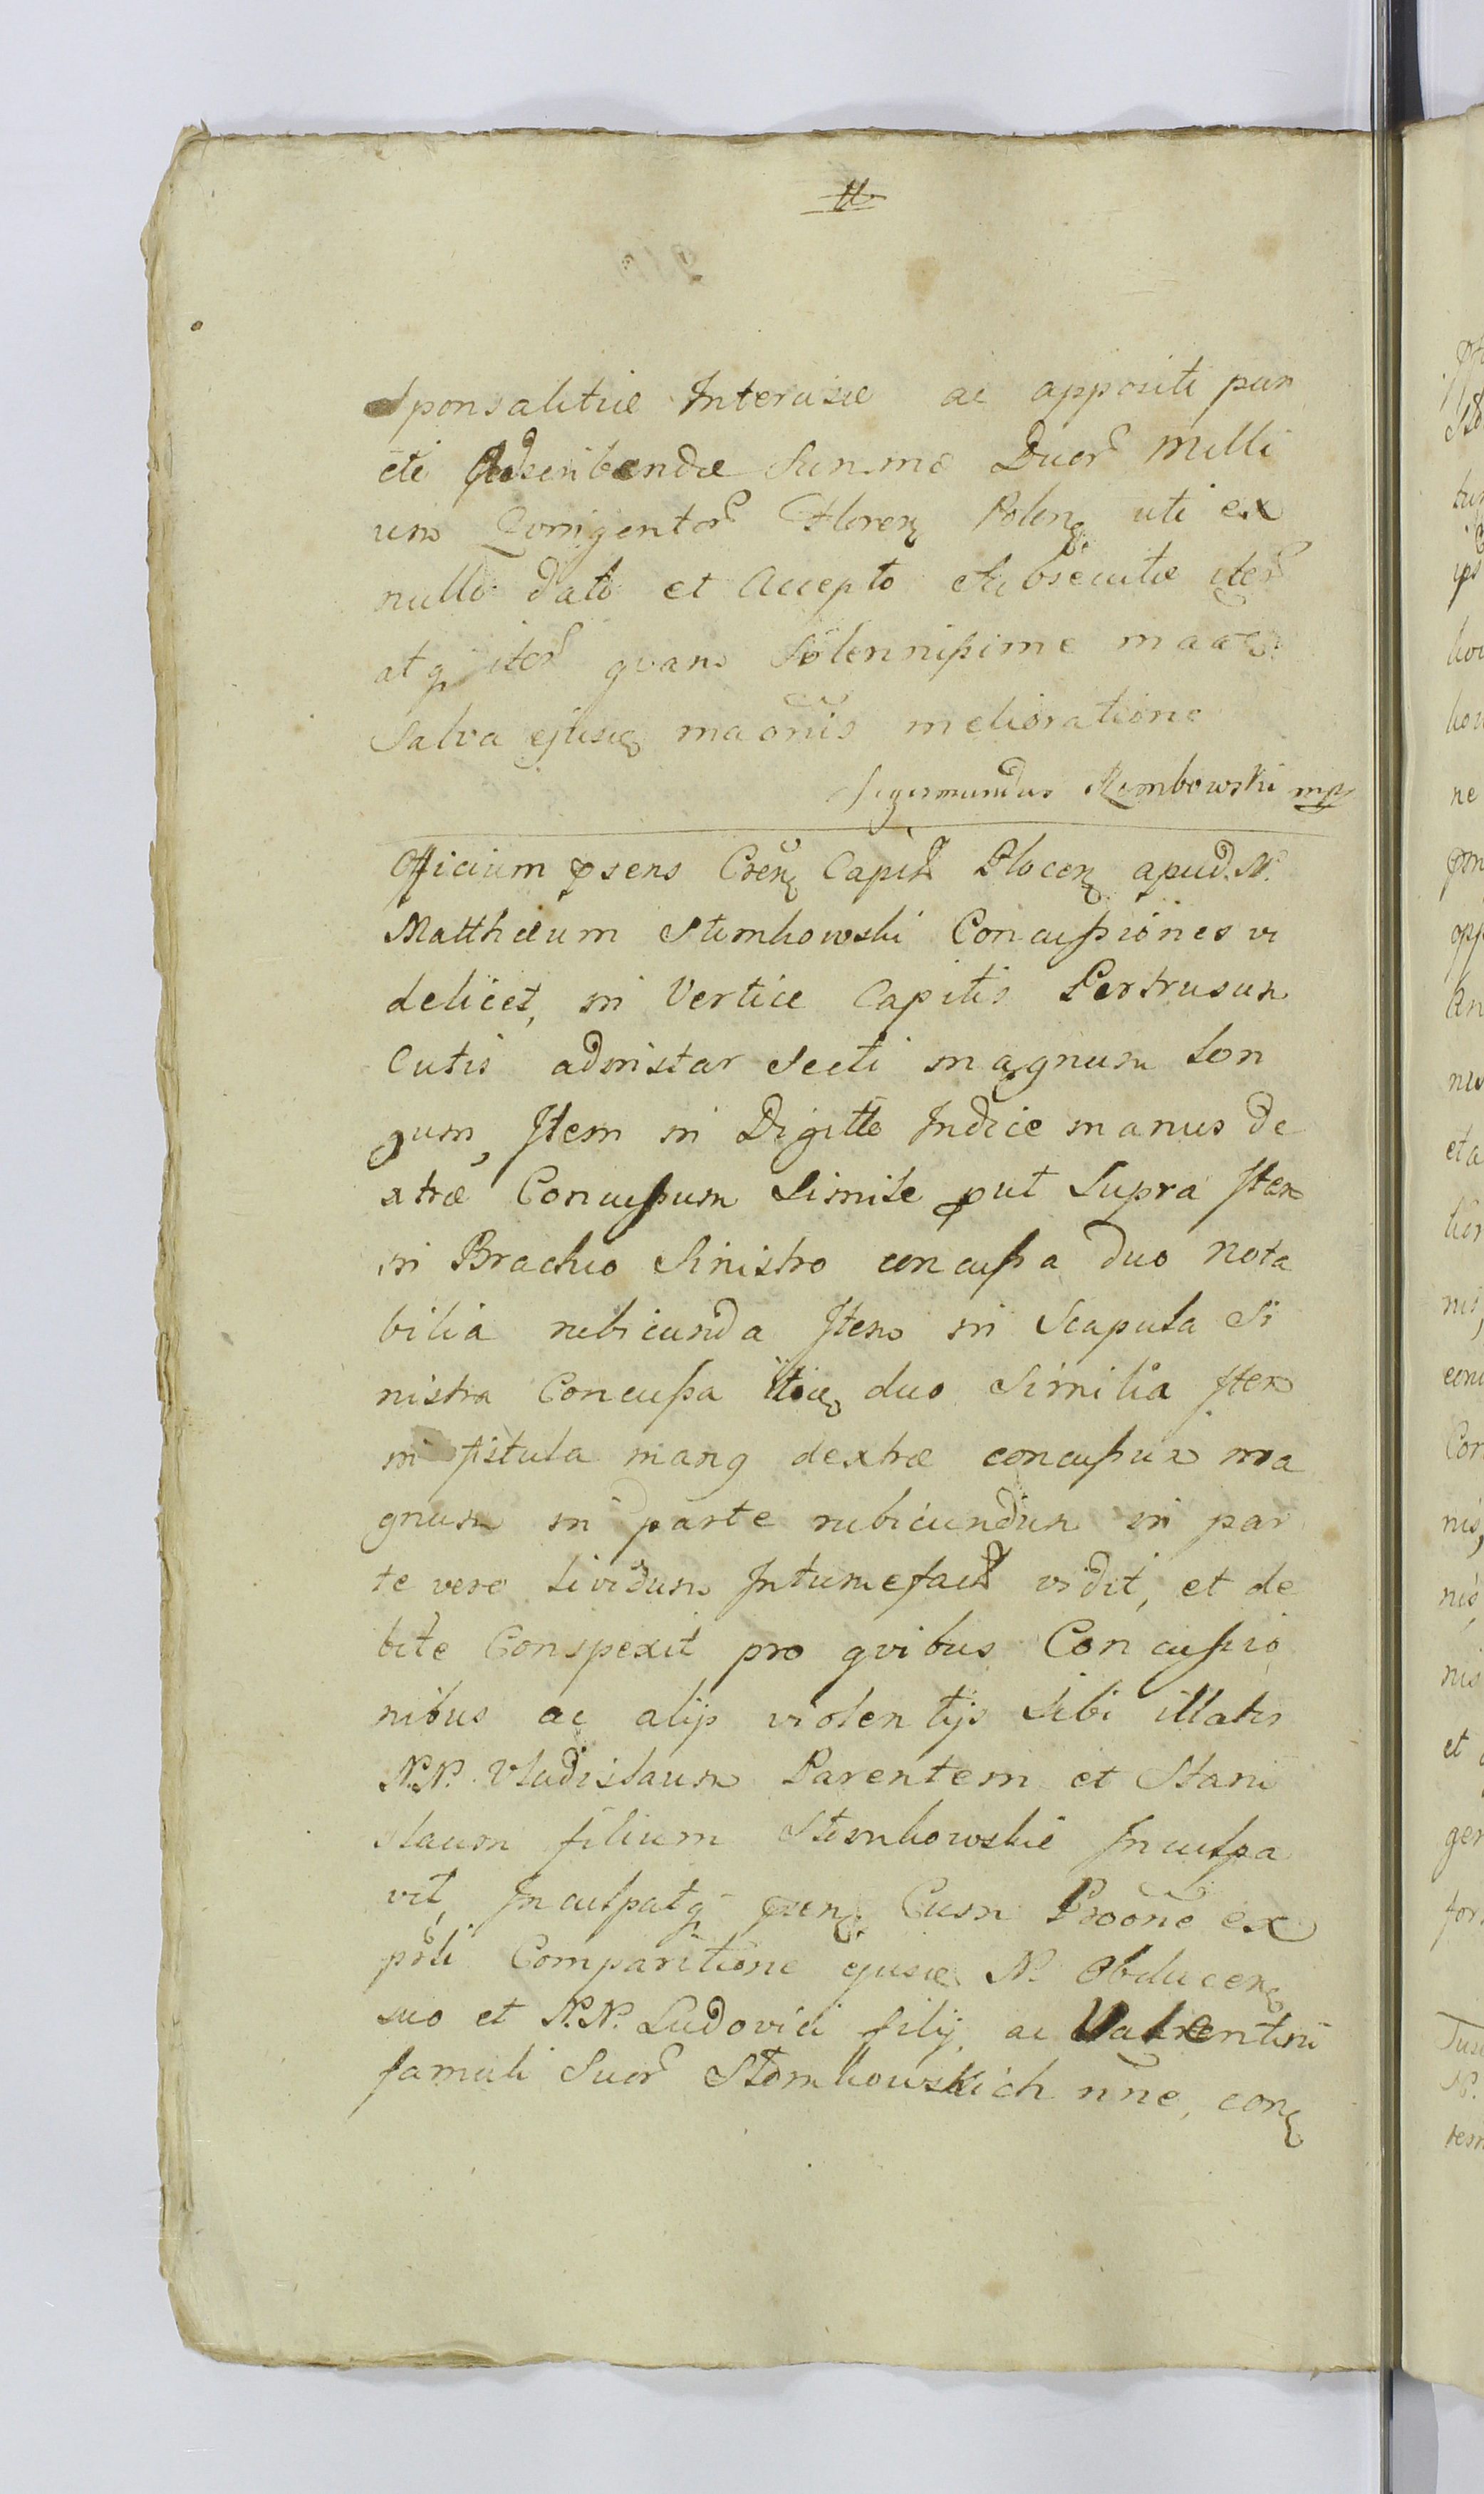 Sponsalitiæ Intercisæ ac appositi pun
cti Adscribendæ Summæ Duor Milli
um Qvingentor Floren Polon uti ex
nullo dato et Accepto Subsecutæ iter
atq iter qvam Solennissime
Salva ejusd maonis melioratione
Sigismundus Rembowski mp
Officium psens Cren Capit Plocen apud N.
Matthæum Slimkowski Concussiones vi
delicet, in Vertice Capitis Pertrusum
Cutis adinstar Secti magnum lon
gum, Item in Digitte Indice manus de
xtræ Concussum Simile put Supra Item
in Brachio Sinistro concussa duo nota
bilia rubicunda Item in Scapula Si
nistra Concussa duo Similia Item
in fistula mang dextræ concussum ma
gnum in parte rubicundum in par
te vero lividum Intumefact vidit, et de
bite Conspexit pro qvibus Concussio
nibus ac alijs violentijs Sibi illatis
N.N. Vladislaum Parentem et Stani
slaum filium Slimkowskie Inculpa
vit, Inculpatq Cum Proone ex
psli Comparitione ejusd N. Obducen
suo et N.N. Ludovici filij, ac Valentini
famuli Suor Slomkowskich nne, con